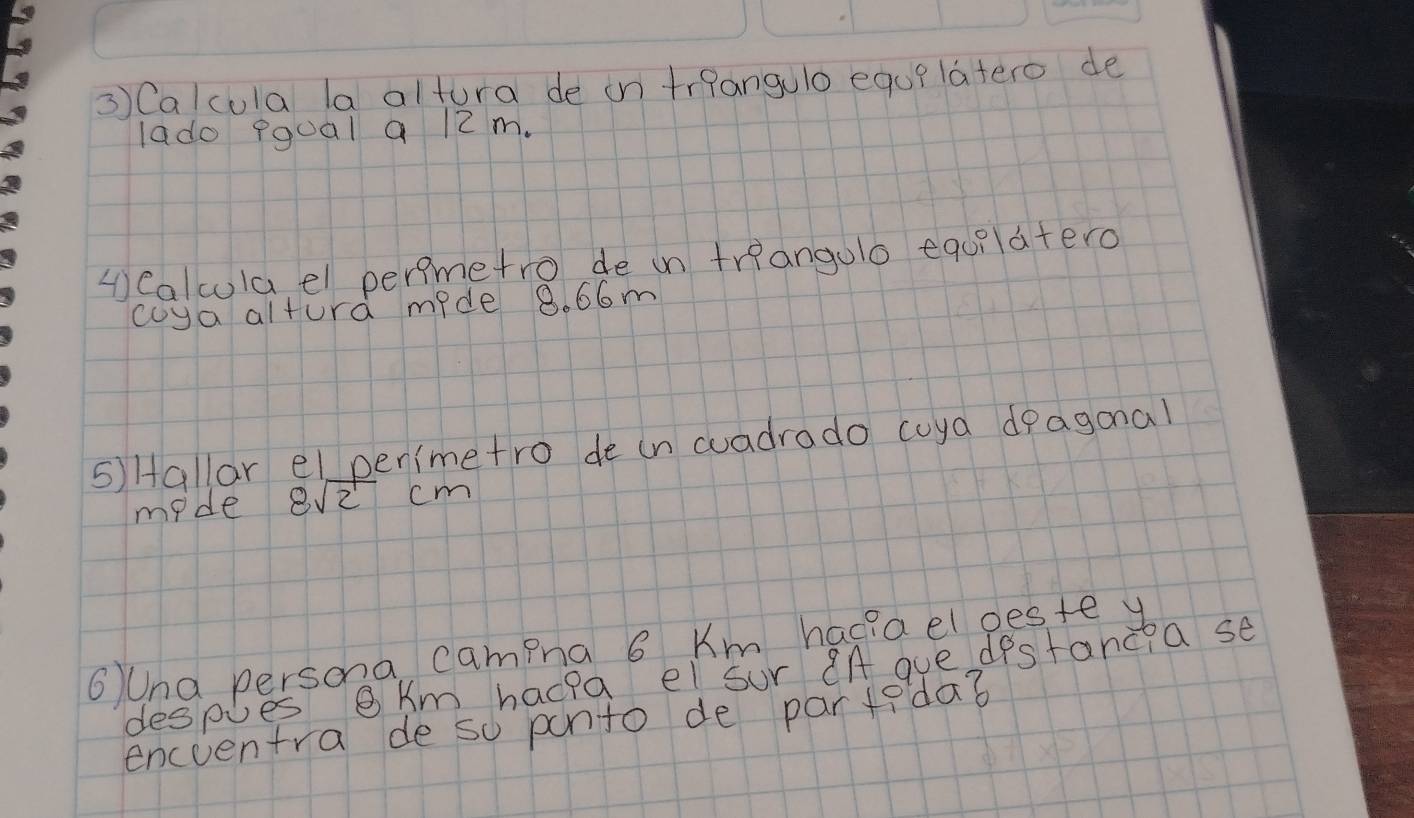 3) Calcula la altura de un triangulo equilátero de
lado igual a 12 m.
4) Calcula el perimetro de un triangulo equilátero
cuya altura mide 8.66m
5) Hallar el perímetro de un cuadrado cuya diagonal
mide 8√2 cm
6) Una persona camina 6 Km hacia el oeste y
despues 8 Km hacia el sur ¿A que distancia se
encuentra de su punto de partida?